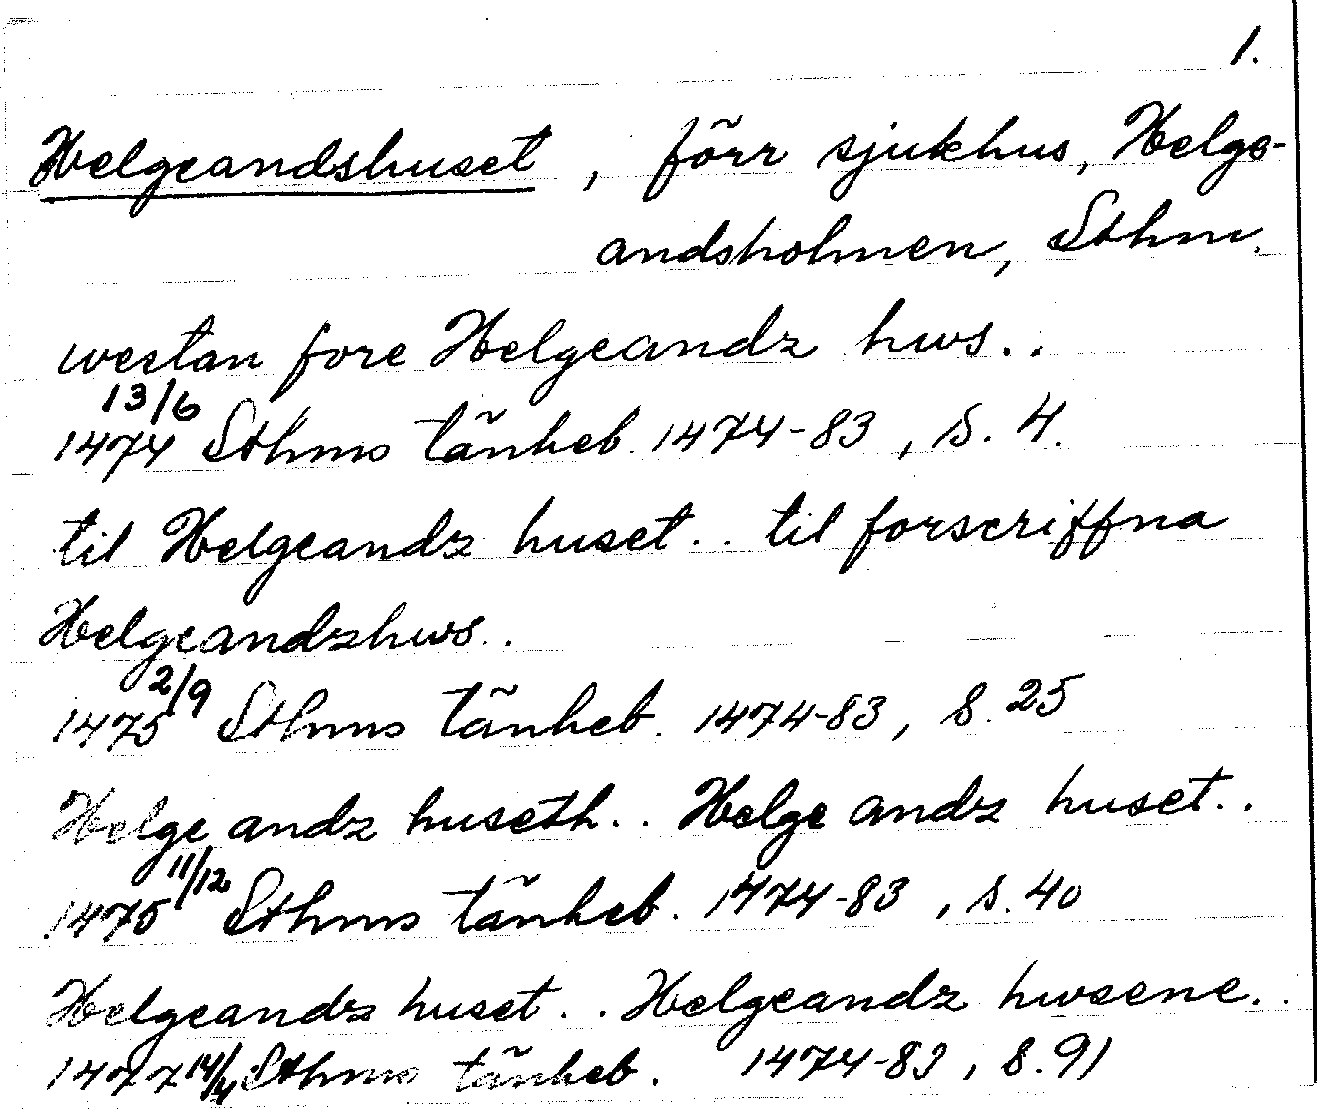 1.
Helgeandshuset, förr sjukhus, Helge-
andsholmen, Sthm.
westan fore Helgeandz hws..
13/6
1474 Sthms tänkeb. 1474-83, s. 4.
til Helgeandz huset.. til forscriffna
Helgeandzhws..
2/9
1475 Sthms tänkeb. 1474-83, s. 25
Helge andz huseth.. Helge andz huset..
11/12
1475 Sthms tänkeb. 1474-83, s. 40
Helgeandz huset.. Helgeandz hwsene..
1477 14/4 Sthms tänkeb. 1474-83, s. 91